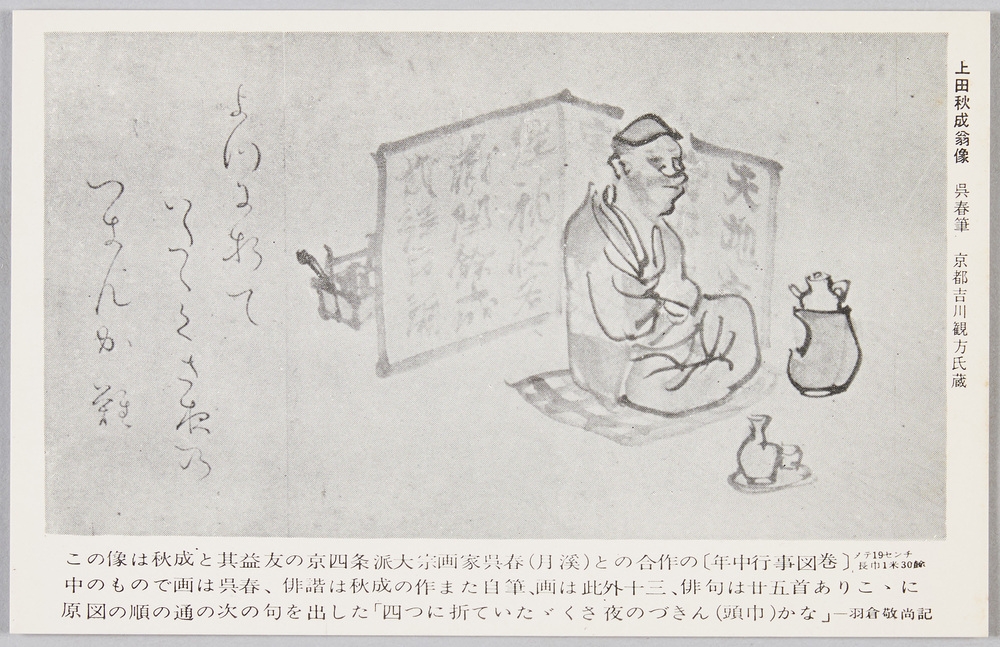 上田秋成翁像 呉春筆 京都吉川観方氏蔵
よつに折て
いたゝくさ夜の
つきんか難
この像は秋成と其益友の京四条派大宗画家呉春(月溪)との合作の〔年中行事図巻〕タテ19センチ 長巾1米30餘
中のもので画は呉春、俳諧は秋成の作また自筆、画は此外十三、俳句は廿五首ありこゝに
原図の順の通の次の句を出した「四つに折ていたゞくさ夜のづきん(頭巾)かな」―羽倉敬尚記